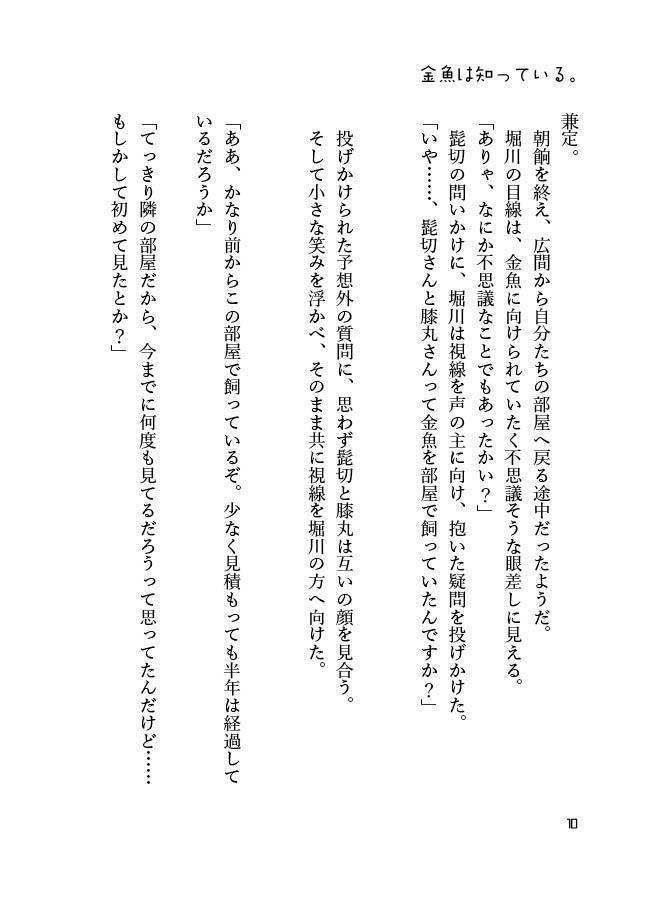 金魚は知っている。
兼定。
朝餉を終え、広間から自分たちの部屋へ戻る途中だったようだ。
堀川の目線は、金魚に向けられていたく不思議そうな眼差しに見える。
「ありゃ、なにか不思議なことでもあったかい？」
髭切の問いかけに、堀川は視線を声の主に向け、抱いた疑問を投げかけた。
「いや……、髭切さんと膝丸さんって金魚を部屋で飼っていたんですか？」
投げかけられた予想外の質問に、思わず髭切と膝丸は互いの顔を見合う。
そして小さな笑みを浮かべ、そのまま共に視線を堀川の方へ向けた。
「ああ、かなり前からこの部屋で飼っているぞ。少なく見積もっても半年は経過して
いるだろうか」
「てっきり隣の部屋だから、今までに何度も見てるだろうって思ってたんだけど……
もしかして初めて見たとか？」
10